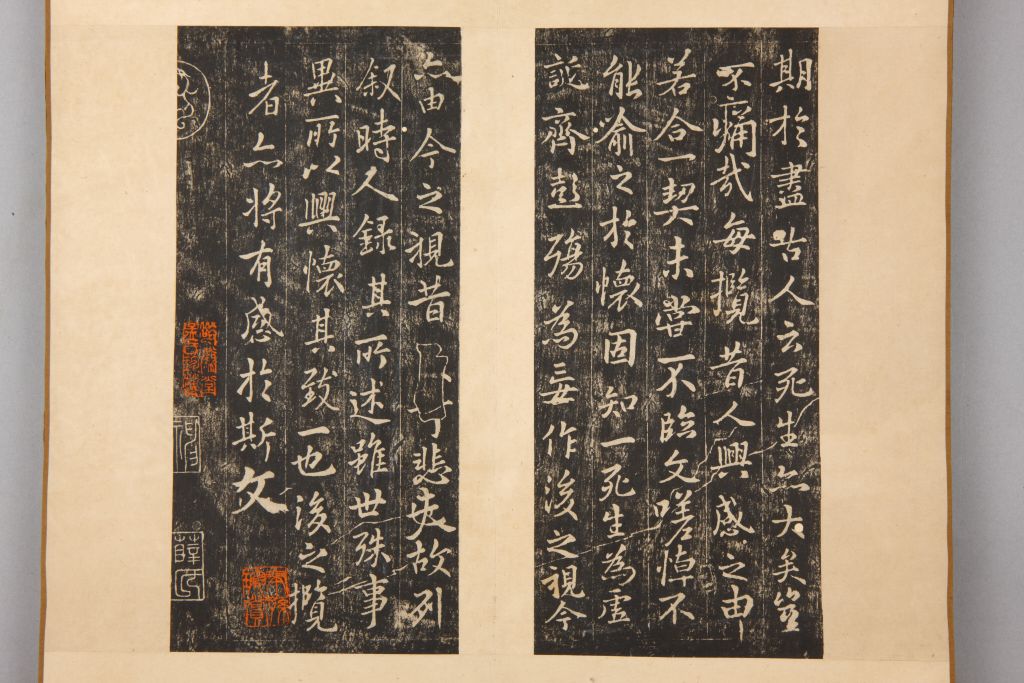 期於盡古人云死生亦大矣豈
不痛哉每攬昔人興感之由
若合一契未嘗不臨文嗟悼不
能喻之於懷固知一死生為虛
誕齊彭殤為妄作後之視今
亦由今之視昔 悲夫故列
叙時人錄其所述雖世殊事
異所以興懷其致一也後之攬
者亦將有感於斯文